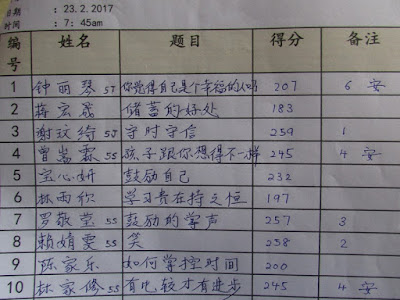 日期 : 23.2.2017
时间 : 7:45am
编号 姓名 题目 得分 备注
1 钟丽琴 5J 你觉得自己是个幸福的人吗 207 6 安
2 蒋宏晟 储蓄的好处 183
3 谢玟绮 5J 守时守信 259 1
4 曾嵩霖 5S 孩子跟你想得不一样 245 4 安
5 宝心妍 鼓励自己 232
6 林雨欣 学习贵在持之恒 197
7 罗敬莹 5S 鼓励的掌声 257 3
8 赖婧雯 5S 笑 258 2
9 陈家乐 如何掌控时间 200
10 林家修 5S 有比较才有进步 245 4 安